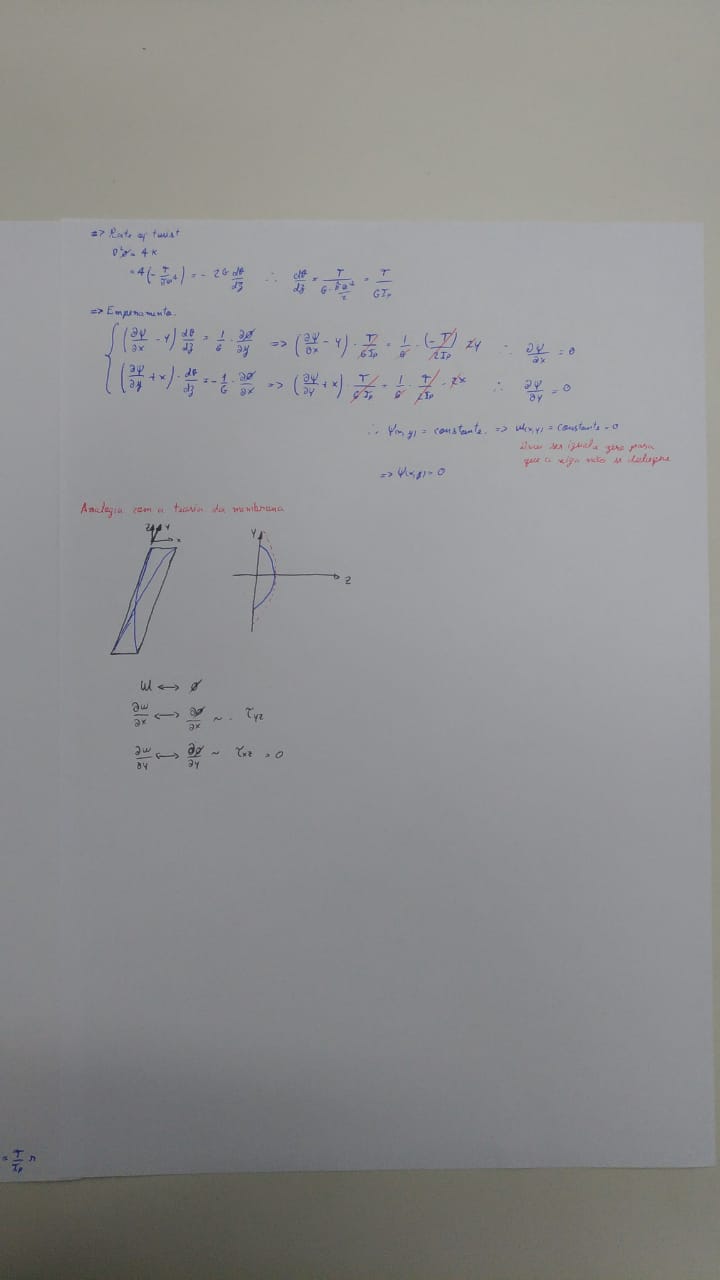 => Rate of twist
∇²ø = 4K
= 4(-T/πa⁴) = -2G dθ/dz ∴ dθ/dz = T/(G·πa⁴/2) = T/GIp
=> Empenamento.
{ (∂ψ/∂x - y) dθ/dz = 1/G · ∂ø/∂y => (∂ψ/∂x - y) · T/GIp = 1/G · (-T/2Ip) 2y ∴ ∂ψ/∂x = 0
(∂ψ/∂y + x) · dθ/dz = -1/G · ∂ø/∂x => (∂ψ/∂y + x) · T/GIp = 1/G · T/2Ip · 2x ∴ ∂ψ/∂y = 0
∴ ψ(x,y) = constante. => w(x,y) = constante = 0
Deve ser igual a zero para
que a viga não se desloque
=> ψ(x,y) = 0
Analogia com a teoria da membrana
z y x
y z
w <-> ø
∂w/∂x <-> ∂ø/∂x ~ - τyz
∂w/∂y <-> ∂ø/∂y ~ τxz = 0
= T/Ip r